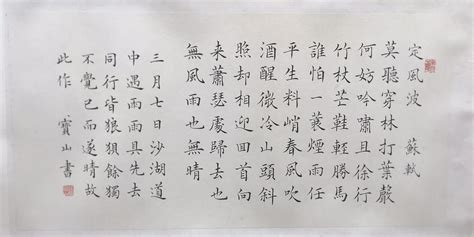 定風波 蘇軾
莫聽穿林打葉聲
何妨吟嘯且徐行
竹杖芒鞋輕勝馬
誰怕一蓑煙雨任
平生料峭春風吹
酒醒微冷山頭斜
照却相迎回首向
來蕭瑟處歸去也
無風雨也無晴
三月七日沙湖道
中遇雨雨具先去
同行皆狼狽餘獨
不覺已而遂晴故
此作 寶山書